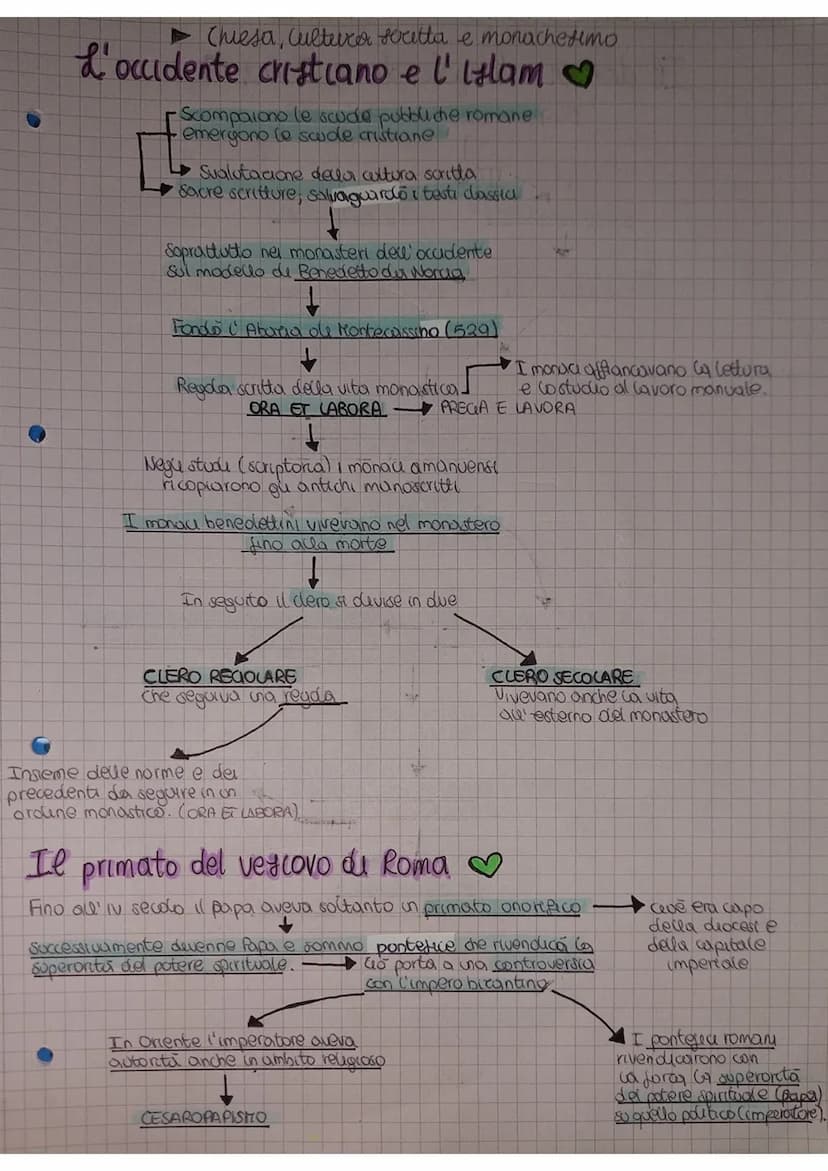 Chiesa, cultura scritta e monachesimo
L'occidente cristiano e l'Islam
Scompaiono le scuole pubbliche romane
emergono le scuole cristiane
Svalutazione della cultura scritta
Sacre scritture, salvaguardò i testi classici
Soprattutto nei monasteri dell'occidente
sul modello di Benedetto da Norcia
Fondò l'Abazia di Montecassino (529)
Regola scritta della vita monastica
I monaci affiancavano la lettura
e lo studio al lavoro manuale.
ORA ET LABORA → PREGA E LAVORA
Negli studi (scriptoria) i monaci amanuensi
ricopiarono gli antichi manoscritti
I monaci benedettini vivevano nel monastero
fino alla morte
In seguito il clero si divise in due
CLERO REGOLARE
che seguiva una regola
CLERO SECOLARE
Vivevano anche la vita
all'esterno del monastero
Insieme delle norme e dei
precedenti da seguire in un
ordine monastico. (ORA ET LABORA)
Il primato del vescovo di Roma
Fino all'IV secolo il papa aveva soltanto un primato onorifico
cioè era capo
della diocesi e
della capitale
imperiale
Successivamente divenne Papa e sommo pontefice che rivendicò la
superiorità del potere spirituale. → Ciò porta a una controversia
con l'impero bizantino
In Oriente l'imperatore aveva
autorità anche in ambito religioso
CESAROPAPISMO
I pontefici romani
rivendicarono con
la forza la superiorità
del potere spirituale (papa)
su quello politico (imperatore).